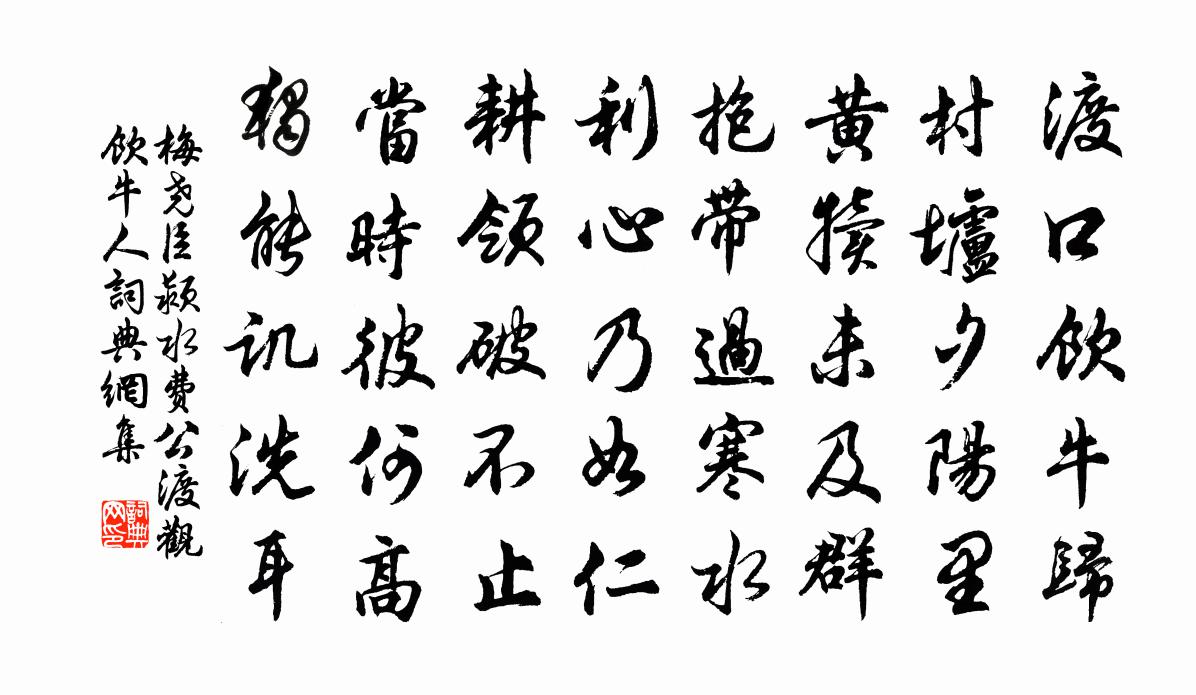 渡口飲牛歸
村壚夕陽里
黄犢未及群
抱帶過寒水
利心乃如仁
耕領破不止
當時彼何高
獨能訊洗耳
梅堯臣潁水費公渡觀
飲牛人詞典網集
詞典网印